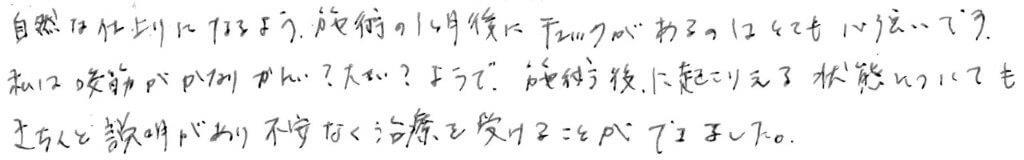 自然な仕上りになるよう、施術の1ヶ月後にチェックがあるのはとても心強いです。
私は咬筋がかなりかたい?大きい?ようで、施術後に起こりえる状態についても
きちんと説明があり不安なく治療を受けることができました。